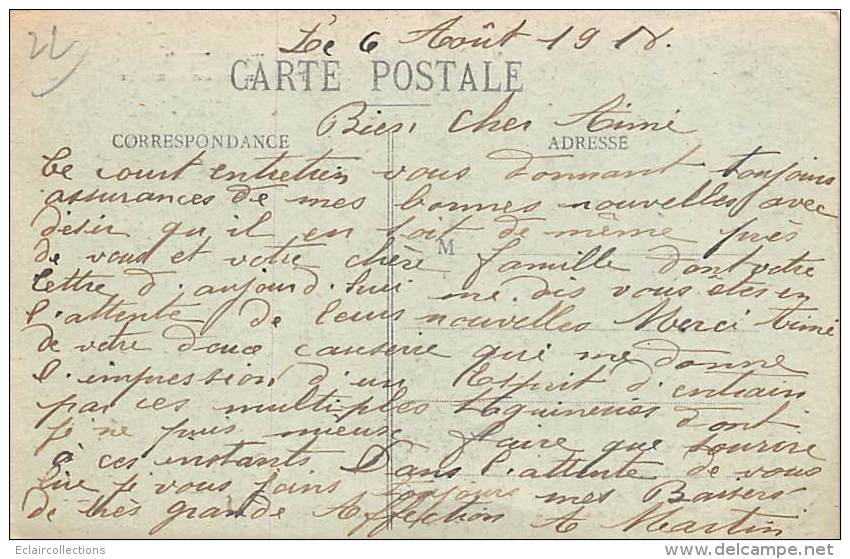 22
Le 6 Août 1918.
CARTE POSTALE
Bien cher Aimé
CORRESPONDANCE ADRESSE
Ce court entretien vous donnant toujours
assurances de mes bonnes nouvelles avec
désir qu'il en soit de même près
de vous et votre chère famille dont votre
M
lettre d'aujourd'hui me dis vous êtes en
l'attente de leurs nouvelles Merci Aimé
de votre douce causerie qui me donne
l'impression d'un Esprit d'entrain
par ces multiples taquineries dont
je ne puis mieux faire que sourire
à ces instants Dans l'attente de vous
lire je vous joins toujours mes Baisers
de très grande Affection A Martin
Eclaircollections
delcampe.net